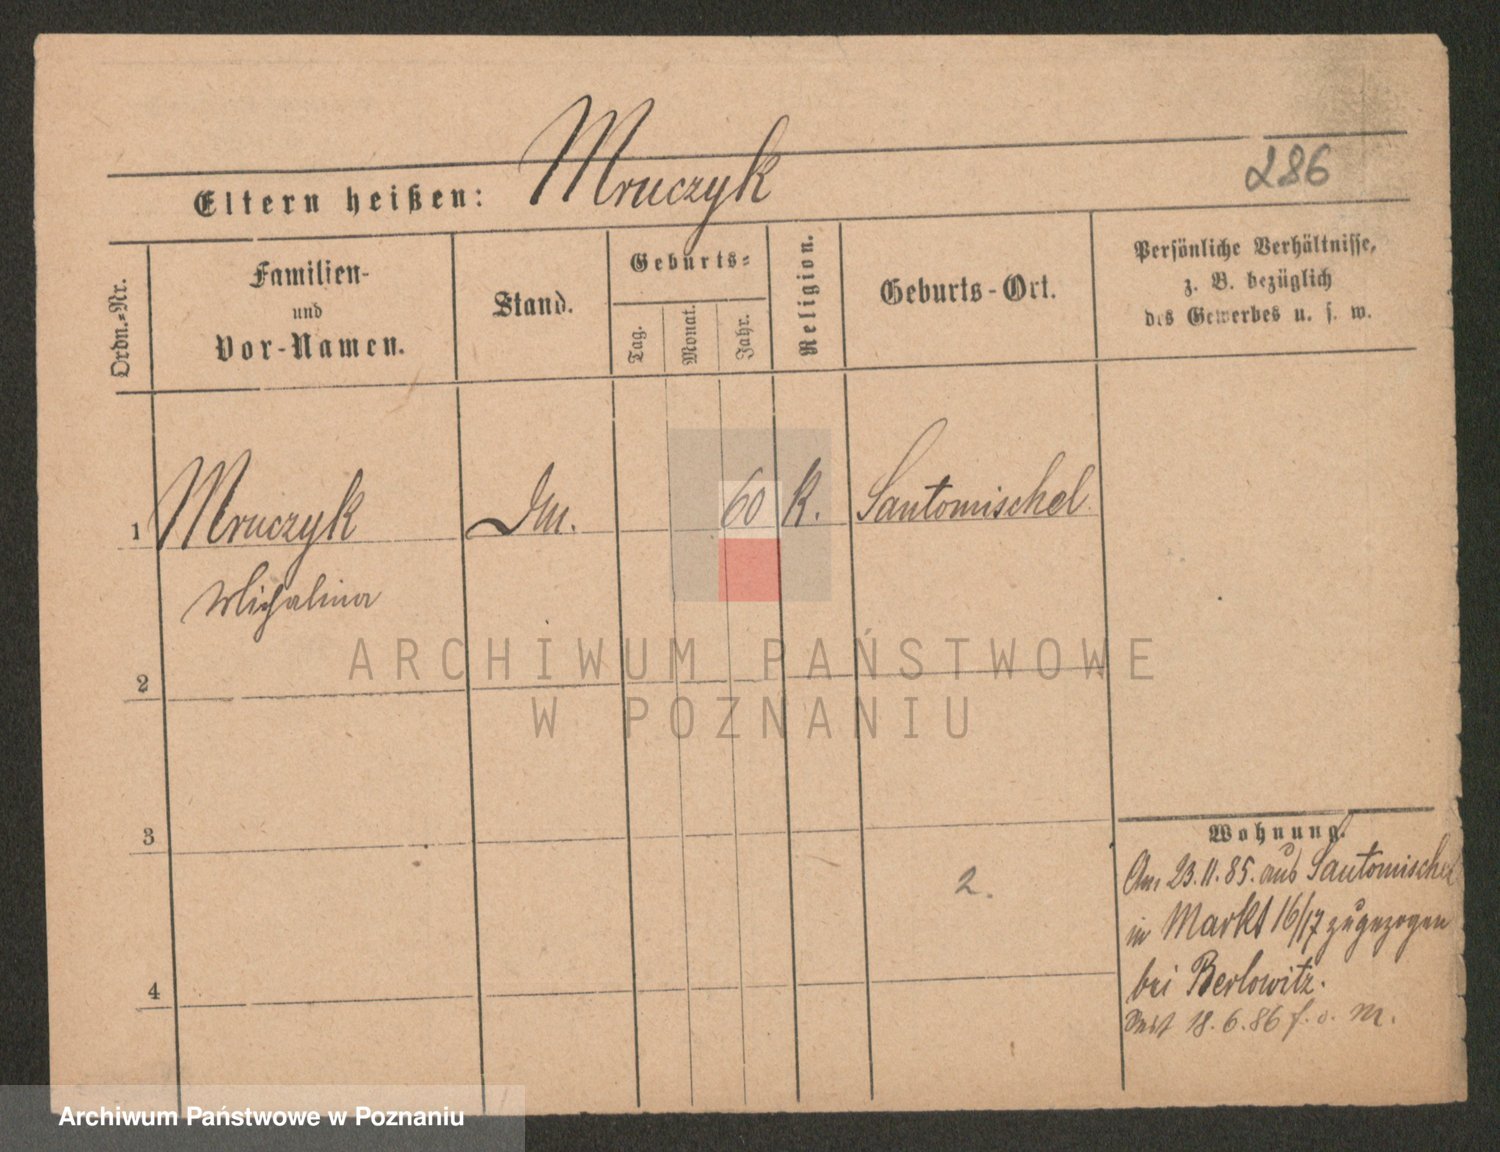 286
Eltern heißen: Mruczyk
Ordn.=Nr.
Familien-
und
Vor-Namen.
Stand.
Geburts=
Tag.
Monat.
Jahr.
Religion.
Geburts-Ort.
Persönliche Verhältnisse,
z. B. bezüglich
des Gewerbes u. s. w.
1 Mruczyk 60 K. Santomischel
Michalina
2
3
4
2.
Wohnung.
Am 23.11.85. aus Santomischel
in Markt 16/17 zugezogen
bei Berlowitz.
Seit 18.6.86 f. o. M.
ARCHIWUM PAŃSTWOWE
W POZNANIU
Archiwum Państwowe w Poznaniu